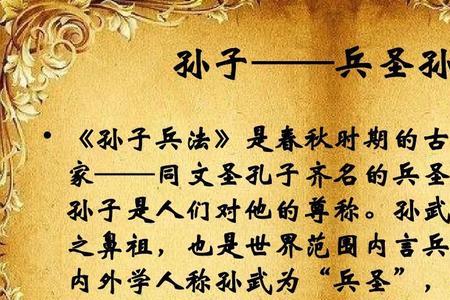 孙子——兵圣孙
• 《孙子兵法》是春秋时期的古
家——同文圣孔子齐名的兵圣
孙子是人们对他的尊称。孙武
之鼻祖，也是世界范围内言兵
内外学人称孙武为“兵圣”，